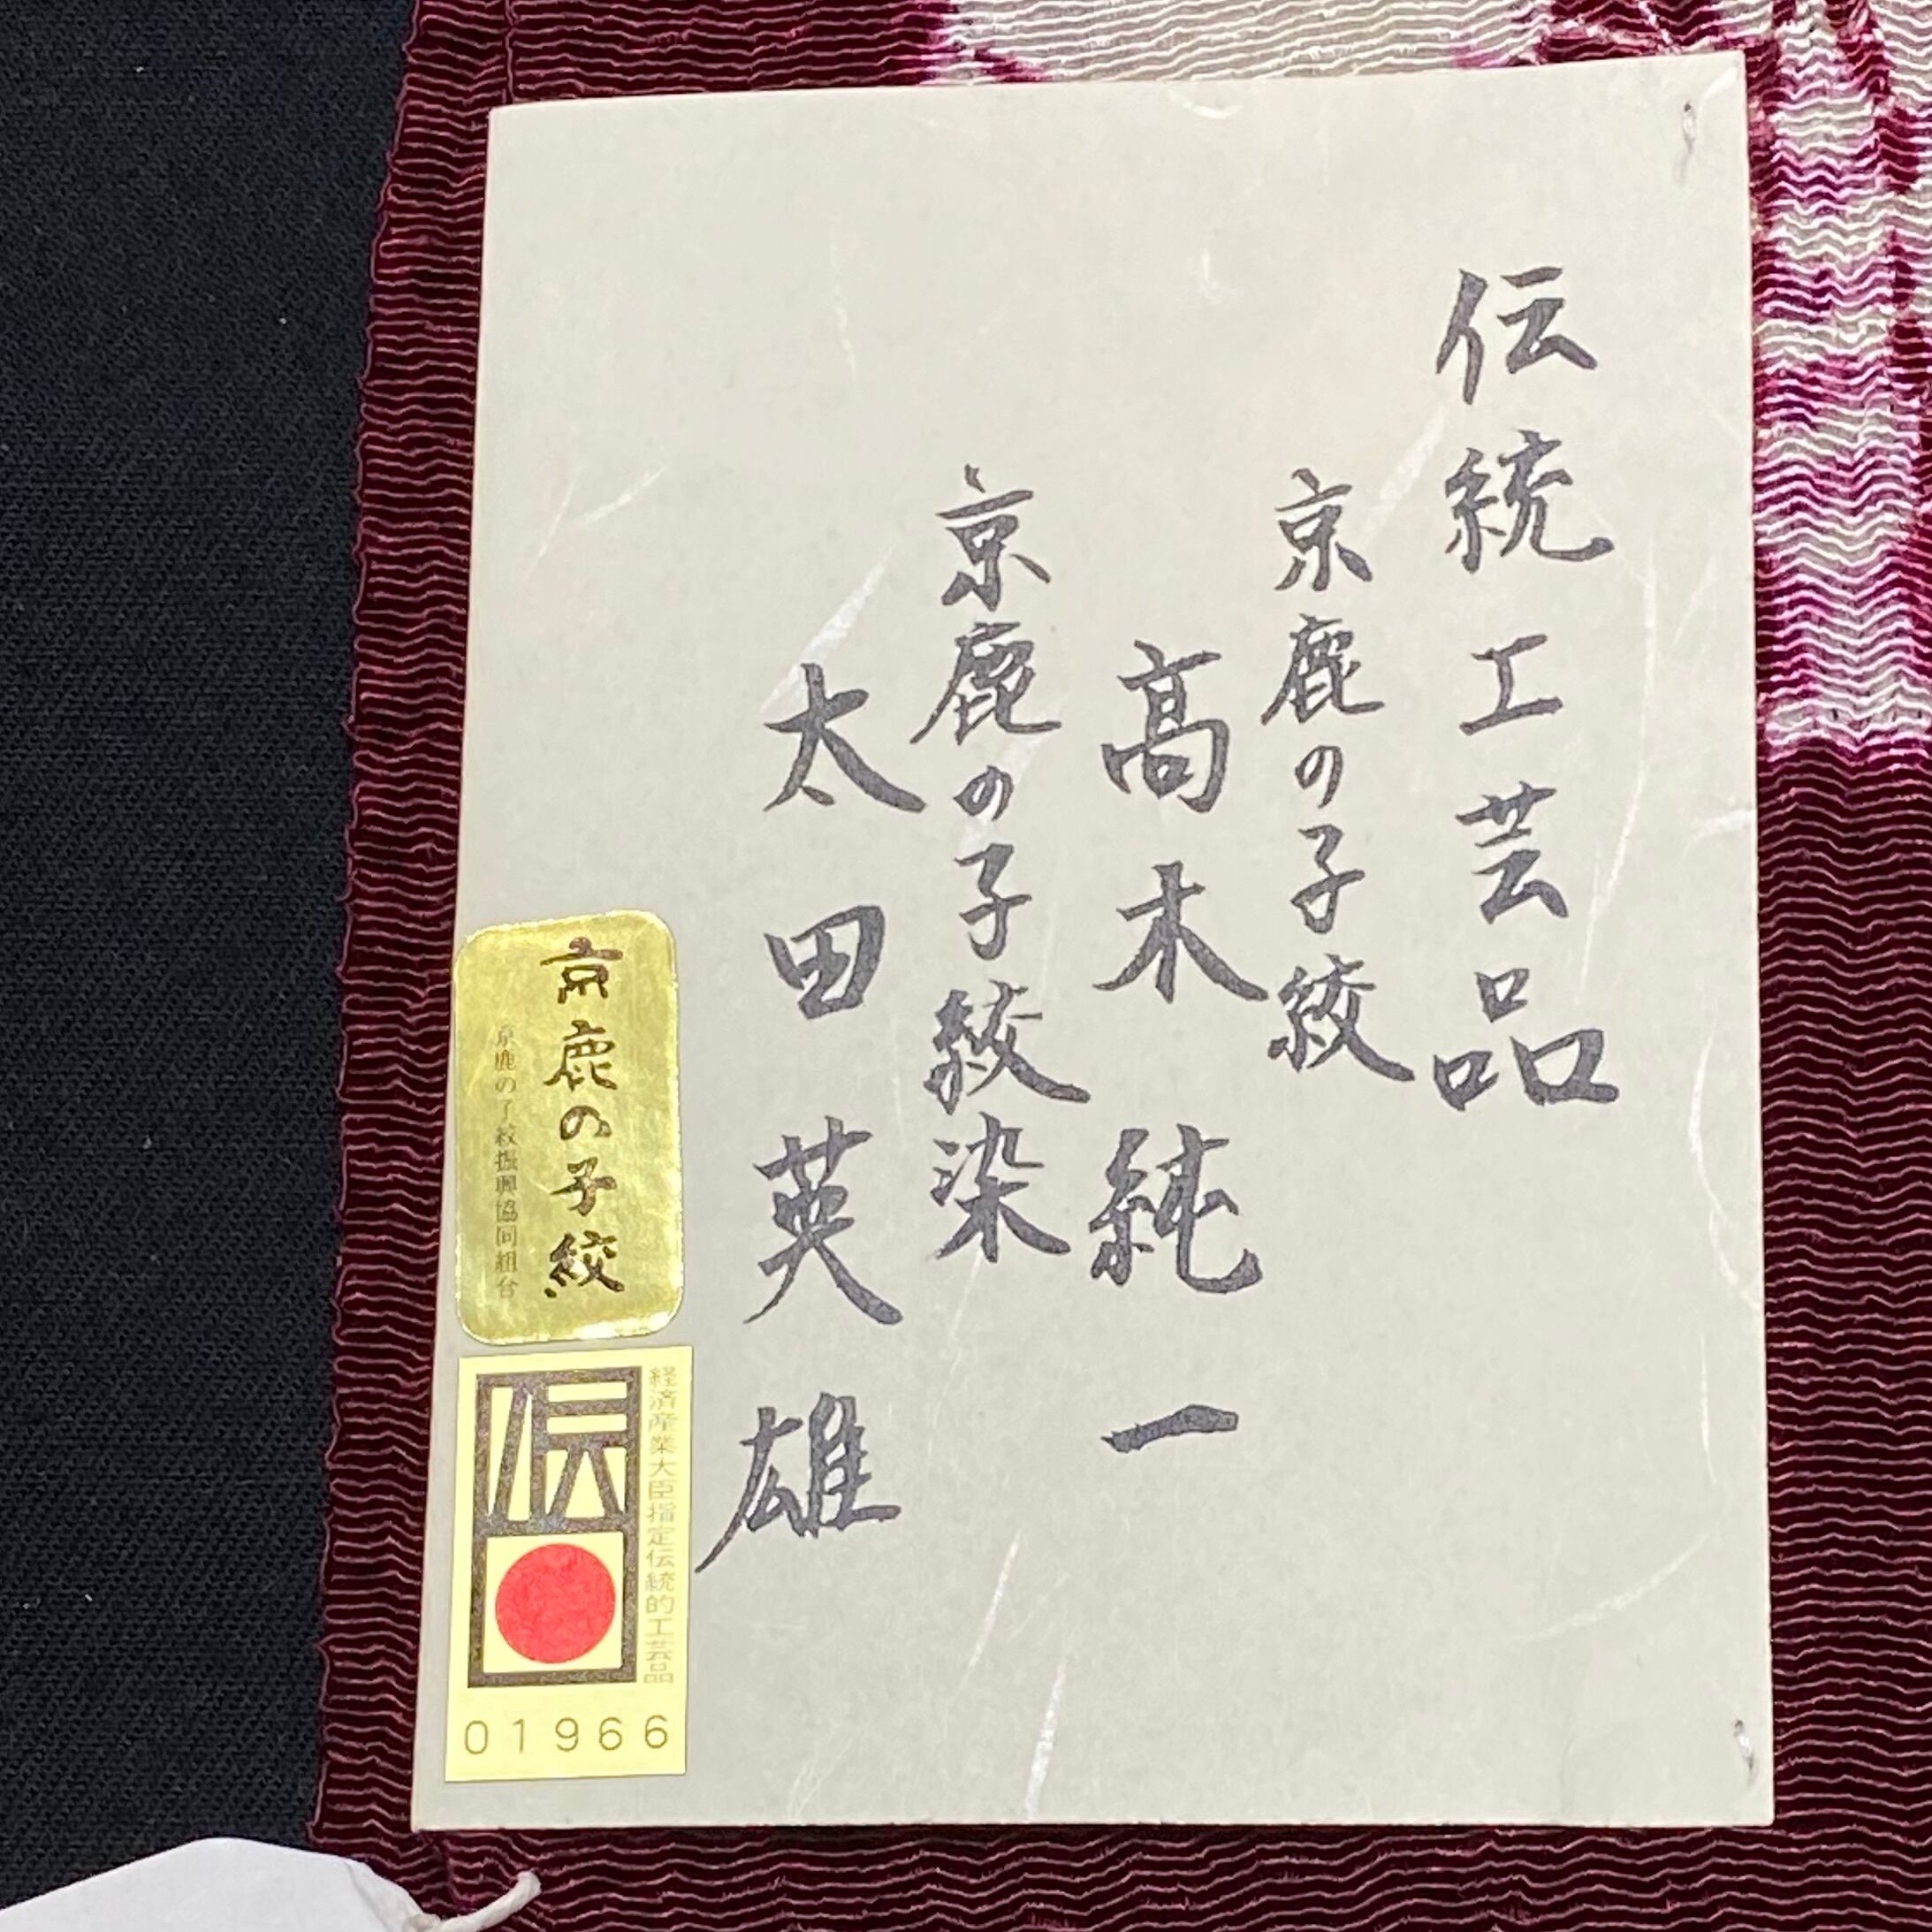 伝統工芸品
京鹿の子絞
髙木純一
京鹿の子絞染
太田英雄
京鹿の子絞
京鹿の子絞振興協同組合
伝
経済産業大臣指定伝統的工芸品
01966